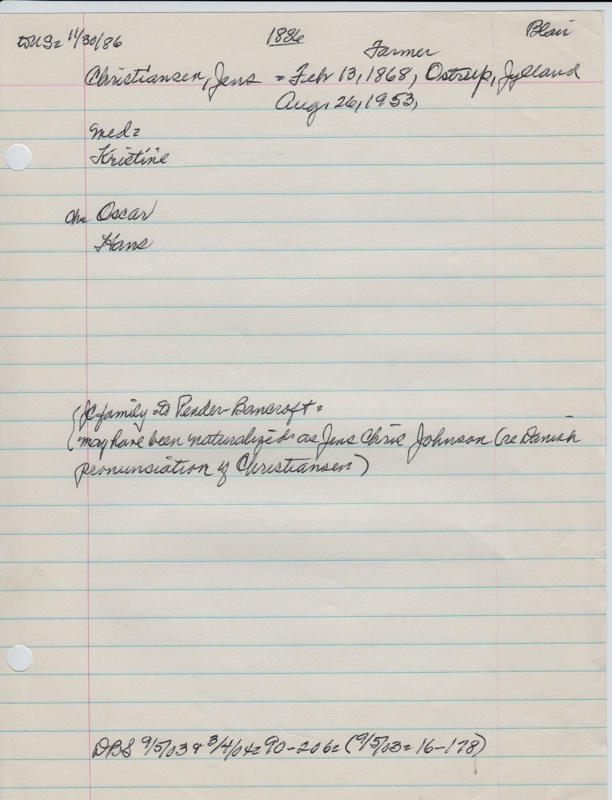 to US= 11/30/86 1886 Blair
Farmer
Christiansen, Jens = Feb 13, 1868, Ostrup, Jylland
Aug. 26, 1953,
med=
Kristine
Ch= Oscar
Hans
(JC family to Pender-Bancroft=
(may have been naturalized as Jens Chric Johnson (re Danish
pronunsiation of Christiansen)
DBS 9/5/03 & 3/4/04= 90-206= (9/5/03= 16-178)